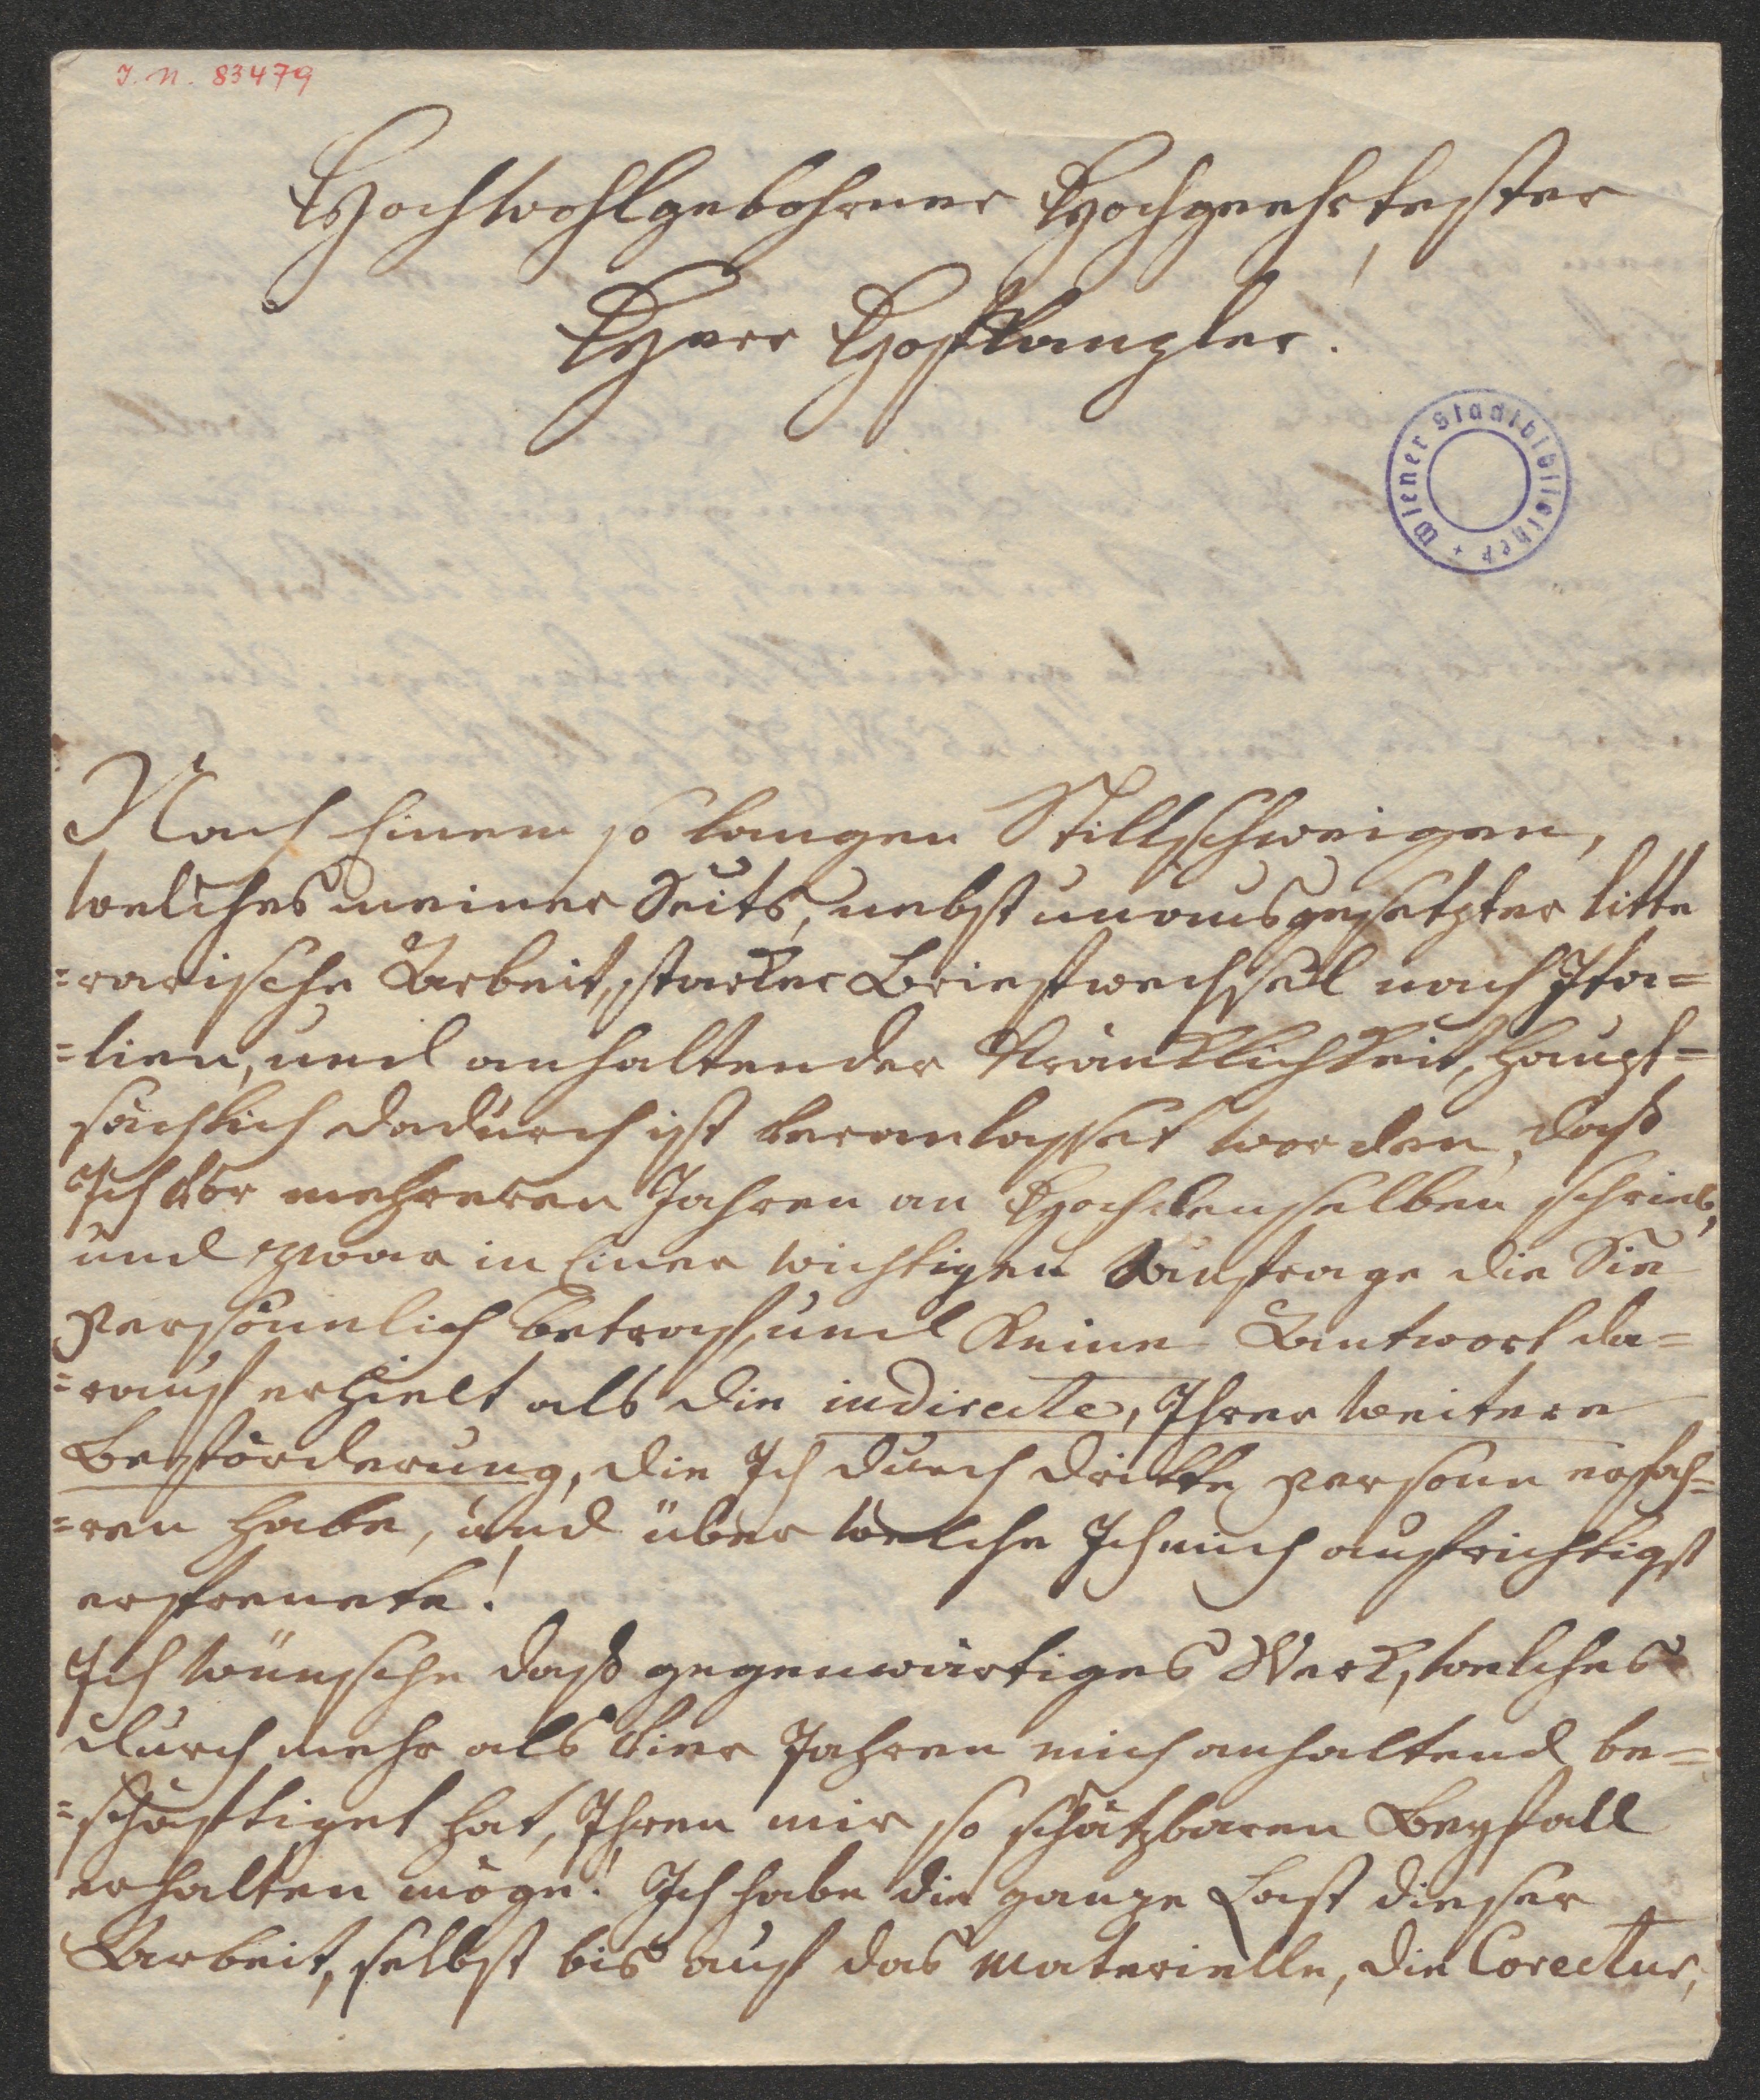 I. N. 83479
Hochwohlgebohrner Hochgeehrtester
Herr Hofkanzler!
Wiener Stadtbibliothek
Nach Einem so langen Stillschweigen,
welches meiner Seits, nebst unausgesetzter litte
=rarische Arbeit, starker Briefwechsel nach Ita=
=lien, und anhaltender Kränklichkeit, haupt=
sächlich dadurch ist veranlasset worden, daß
Ich vor mehreren Jahren an Hochdenselben schrieb,
und zwar in Einer wichtigen Anfrage die Sie
persönnlich betraf, und Keine Antwort da=
=rauf erhielt als die indirecte, Ihrer weitere
Beförderung, die Ich durch dritte Persone erfah=
=ren habe, und über welche Ich mich aufrichtigst
erfreuete!
Ich wünsche daß gegenwärtiges Werk, welches
durch mehr als vier Jahren mich anhaltend be=
=schäftiget hat, Ihren mir so schätzbaren Beyfall
erhalten möge! Ich habe die ganze Last dieser
Arbeit, selbst bis auf das Materielle, die Corectur,